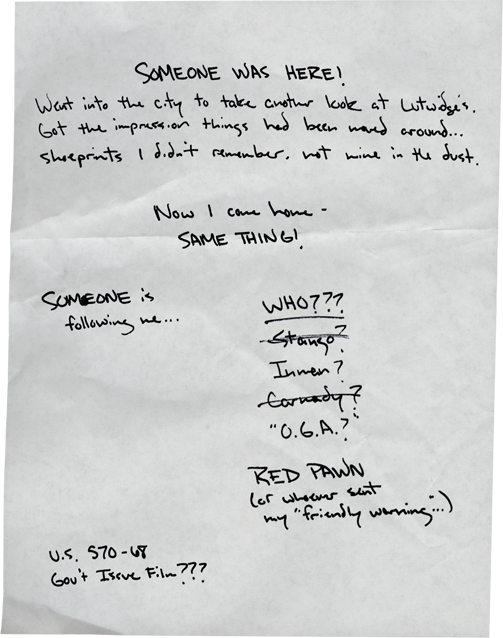 SOMEONE WAS HERE!
Went into the city to take another look at Lutwidge's.
Got the impression things had been moved around...
shoeprints I didn't remember, not mine in the dust.
Now I come home -
SAME THING!
SOMEONE is
following me...
WHO???
Stango?
Inman?
Carnady?
"O.G.A.?
RED PAWN
(or whoever sent
my "friendly warning"...)
U.S. S70-68
Gov't Issue Film???